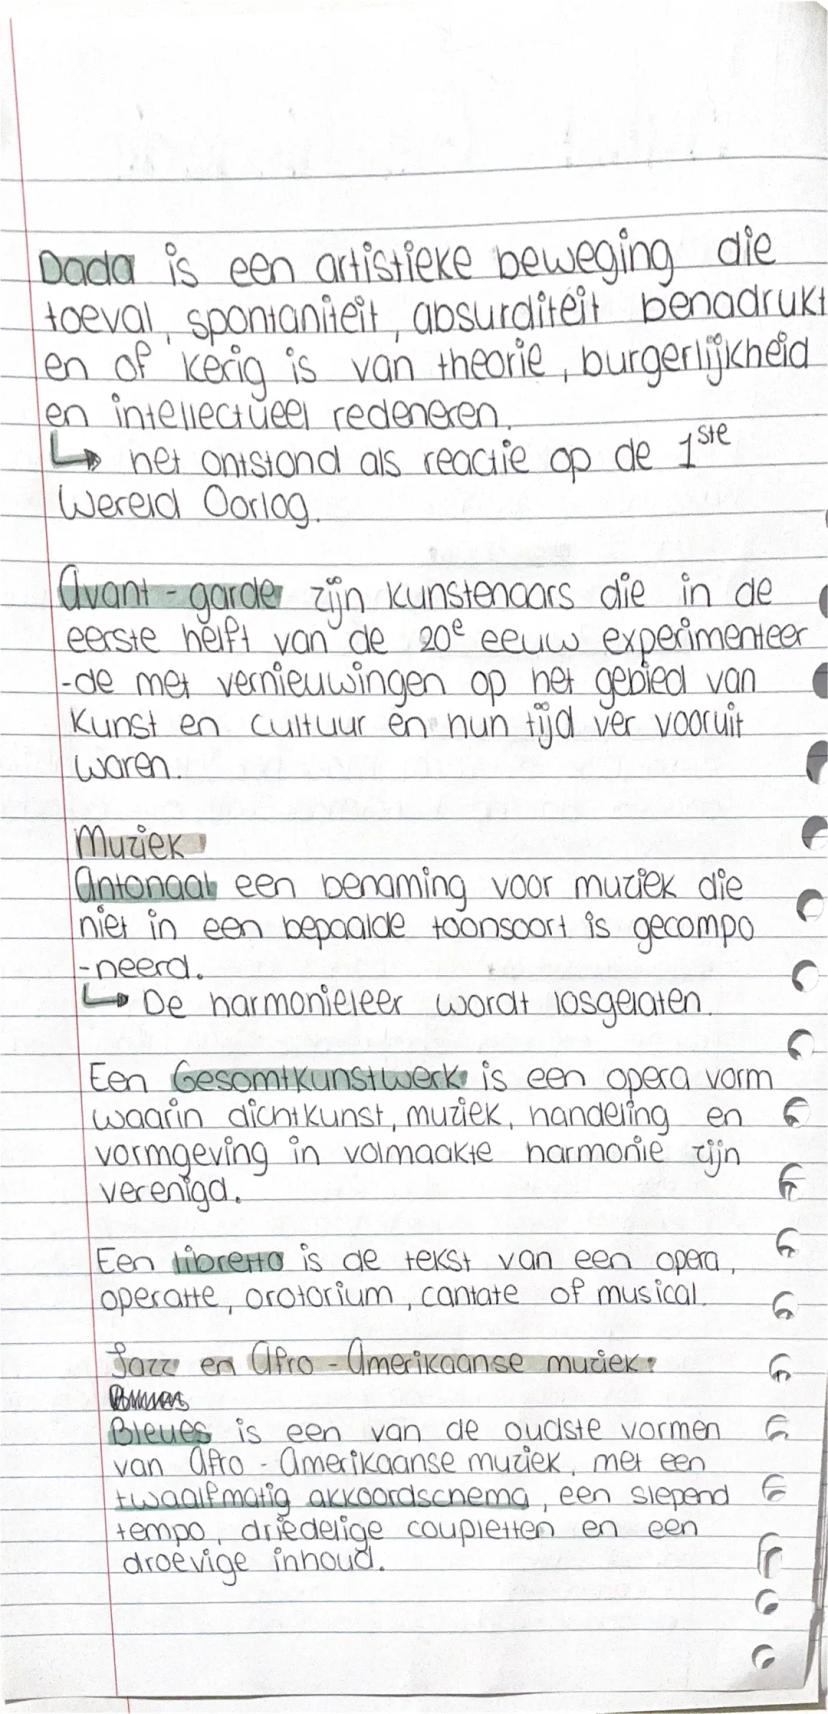 Dada is een artistieke beweging die
toeval, spontaniteit, absurditeit benadrukt
en of kerig is van theorie, burgerlijkheid
en intellectueel redeneren.
↳ het ontstond als reactie op de 1ste
Wereld Oorlog.
Avant-garde zijn kunstenaars die in de
eerste helft van de 20e eeuw experimenteer
-de met vernieuwingen op het gebied van
kunst en cultuur en hun tijd ver vooruit
waren.
Muziek
Antonaal een benaming voor muziek die
niet in een bepaalde toonsoort is gecompo
-neerd.
↳ De harmonieleer wordt losgelaten.
Een Gesamtkunstwerk is een opera vorm
waarin dichtkunst, muziek, handeling en
vormgeving in volmaakte harmonie zijn
verenigd.
Een libretto is de tekst van een opera,
operatte, oratorium, cantate of musical.
Jazz en Afro-Amerikaanse muziek:
Bleues is een van de oudste vormen
van Afro-Amerikaanse muziek, met een
twaalfmatig akkoordschema, een slepend
tempo, driedelige coupletten en een
droevige inhoud.